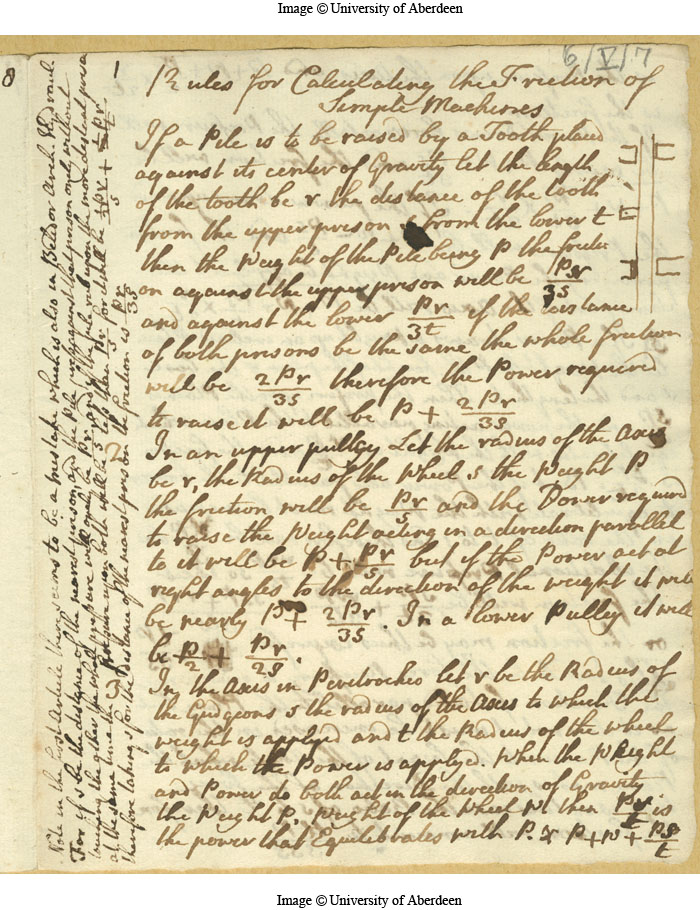 Image © University of Aberdeen
6/V/7
8
1
Rules for Calculating the Friction of
Simple Machines
If a Pile is to be raised by a Tooth placed
against its center of Gravity let the length
of the tooth be r the distance of the tooth
from the upper prison s from the lower t
then the Weight of the Pile being P the fricti
on against the upper prison will be Pr/3s
and against the lower Pr/3t if the distance
of both prisons be the same the whole friction
will be 2Pr/3s therefore the Power required
to raise it will be P + 2Pr/3s
2
In an upper pulley Let the radius of the Axis
be r, the Radius of the Wheel s the Weight P
the friction will be Pr/s and the Power required
to raise the Weight acting in a direction parrallel
to it will be P + Pr/s but if the Power act at
right angles to the direction of the weight it will
be nearly P + 2Pr/3s. In a lower Pulley it will
be P/2 + Pr/2s.
3
In the Axis in Peretrochio let r be the Radius of
the Gudgeons s the radius of the Axis to which the
weight is applyed and t the Radius of the wheel
to which the Power is applyed. When the Weight
and Power do both act in the direction of Gravity
the Weight P, Weight of the Wheel W then is
the power that Equilibrates with P. & P+W+Ps/t
Note in the first Article there seems to be a mistake which is also in Belidor Arch. Hydraul.
For if s be the distance of the nearest prison and the Pile against that prison only without
touching the other the whole pressure will only be Pr/s and if the pile rest upon the more distant prison
at the same time the pressure upon both will be less than Pr/s for it will be
therefore taking s for the Distance of the nearest prison the friction is Pr/3s
Image © University of Aberdeen